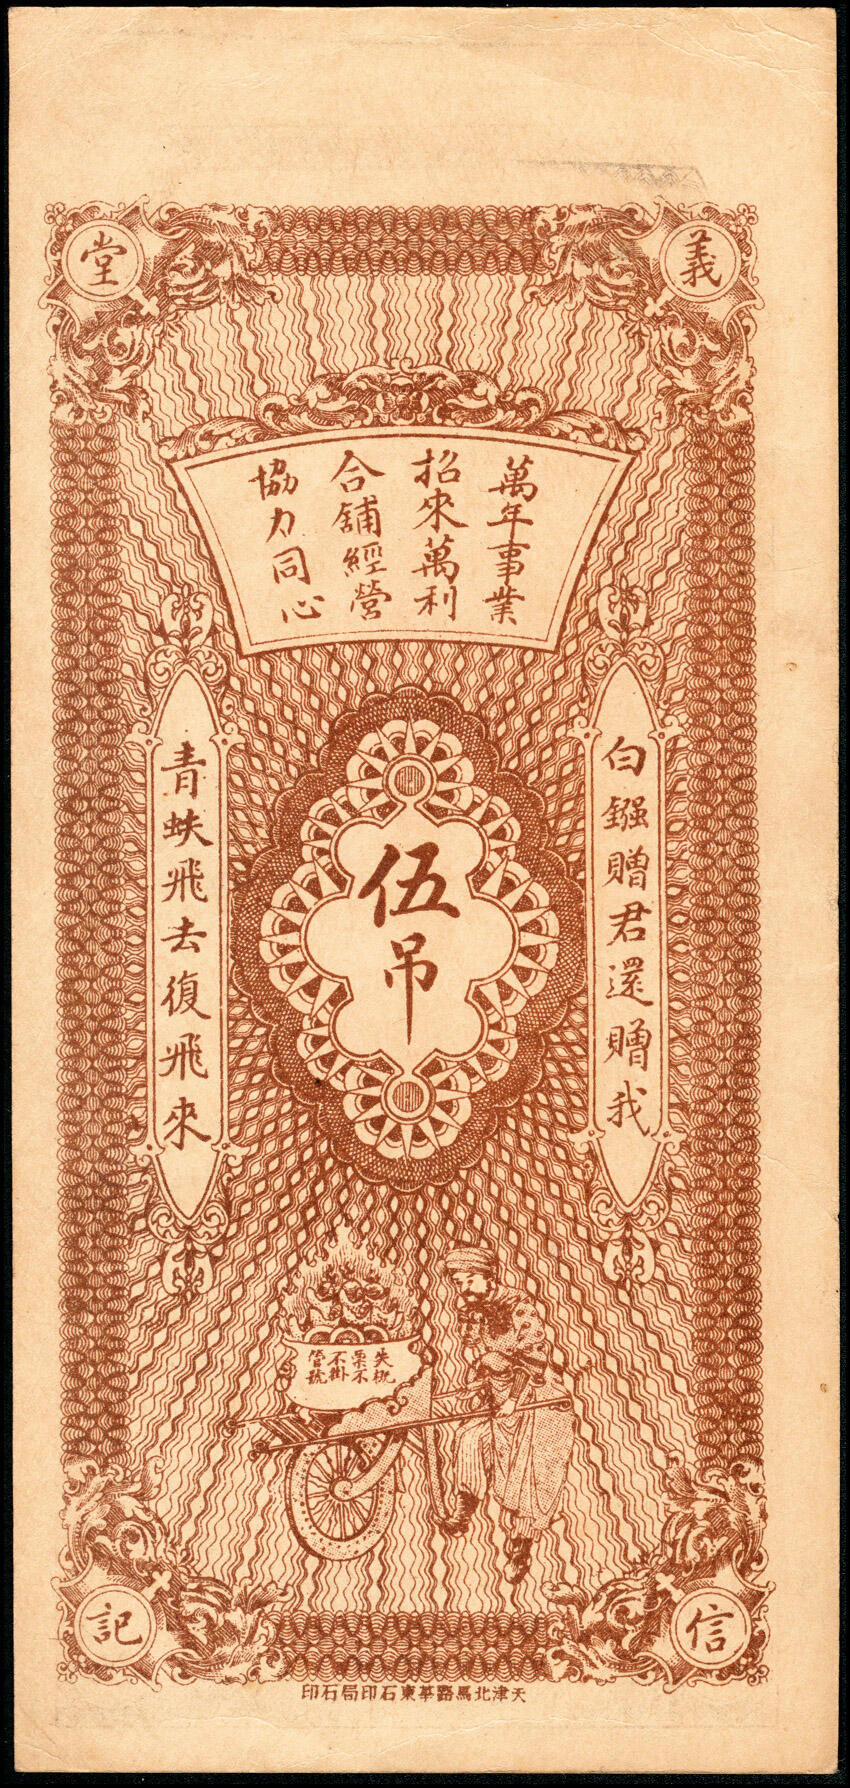 義
堂
萬年事業
招來萬利
合舖經營
協力同心
白鏹贈君還贈我
伍吊
青蚨飛去復飛來
失票不管
概不掛號
信
記
天津北馬路華東石印局石印